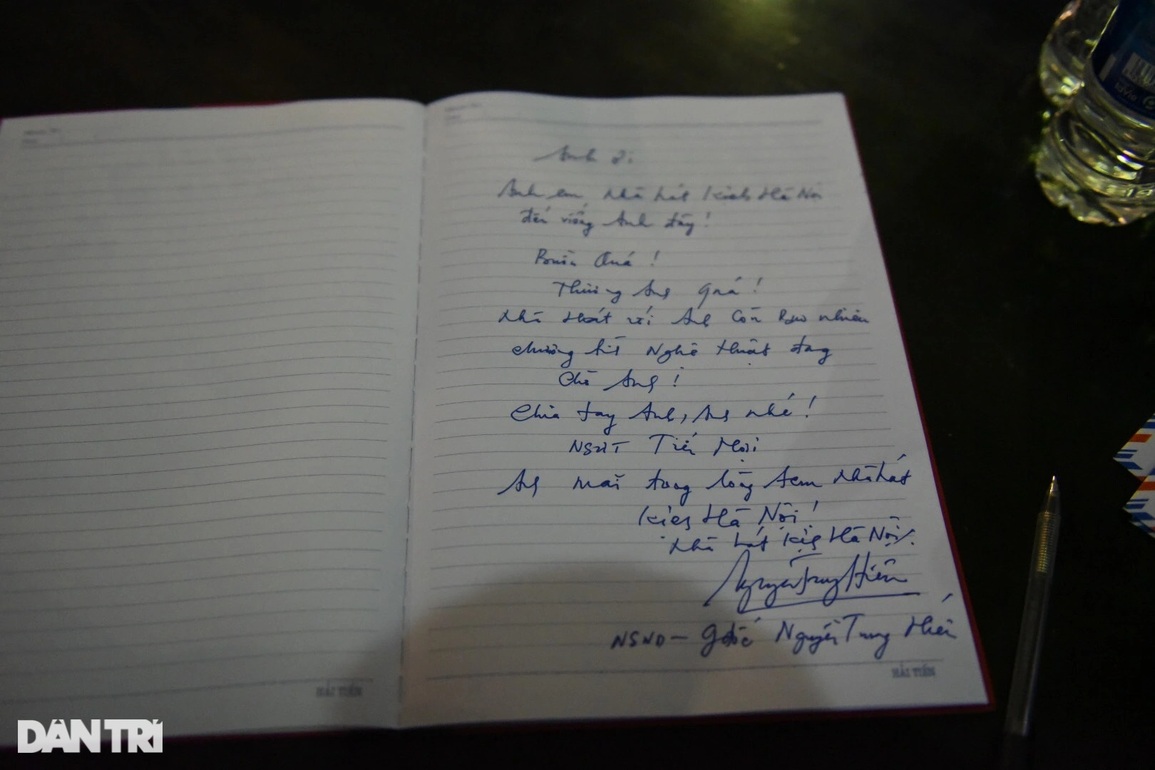 Anh ơi
Anh em Nhà hát Kịch Hà Nội
đến viếng Anh đây!
Buồn Quá!
Thương Anh quá!
Nhà Hát với Anh Còn Bao nhiêu
chương trình Nghệ thuật đang
Chờ Anh!
Chia tay Anh, Anh nhé!
NSƯT Tiến Mợi
Anh mãi trong lòng Aem Nhà hát
Kịch Hà Nội!
Nhà hát Kịch Hà Nội.
Nguyễn Trung Hiếu
NSND - Gđốc Nguyễn Trung Hiếu
HẢI TIẾN
HẢI TIẾN
DÂN TRÍ